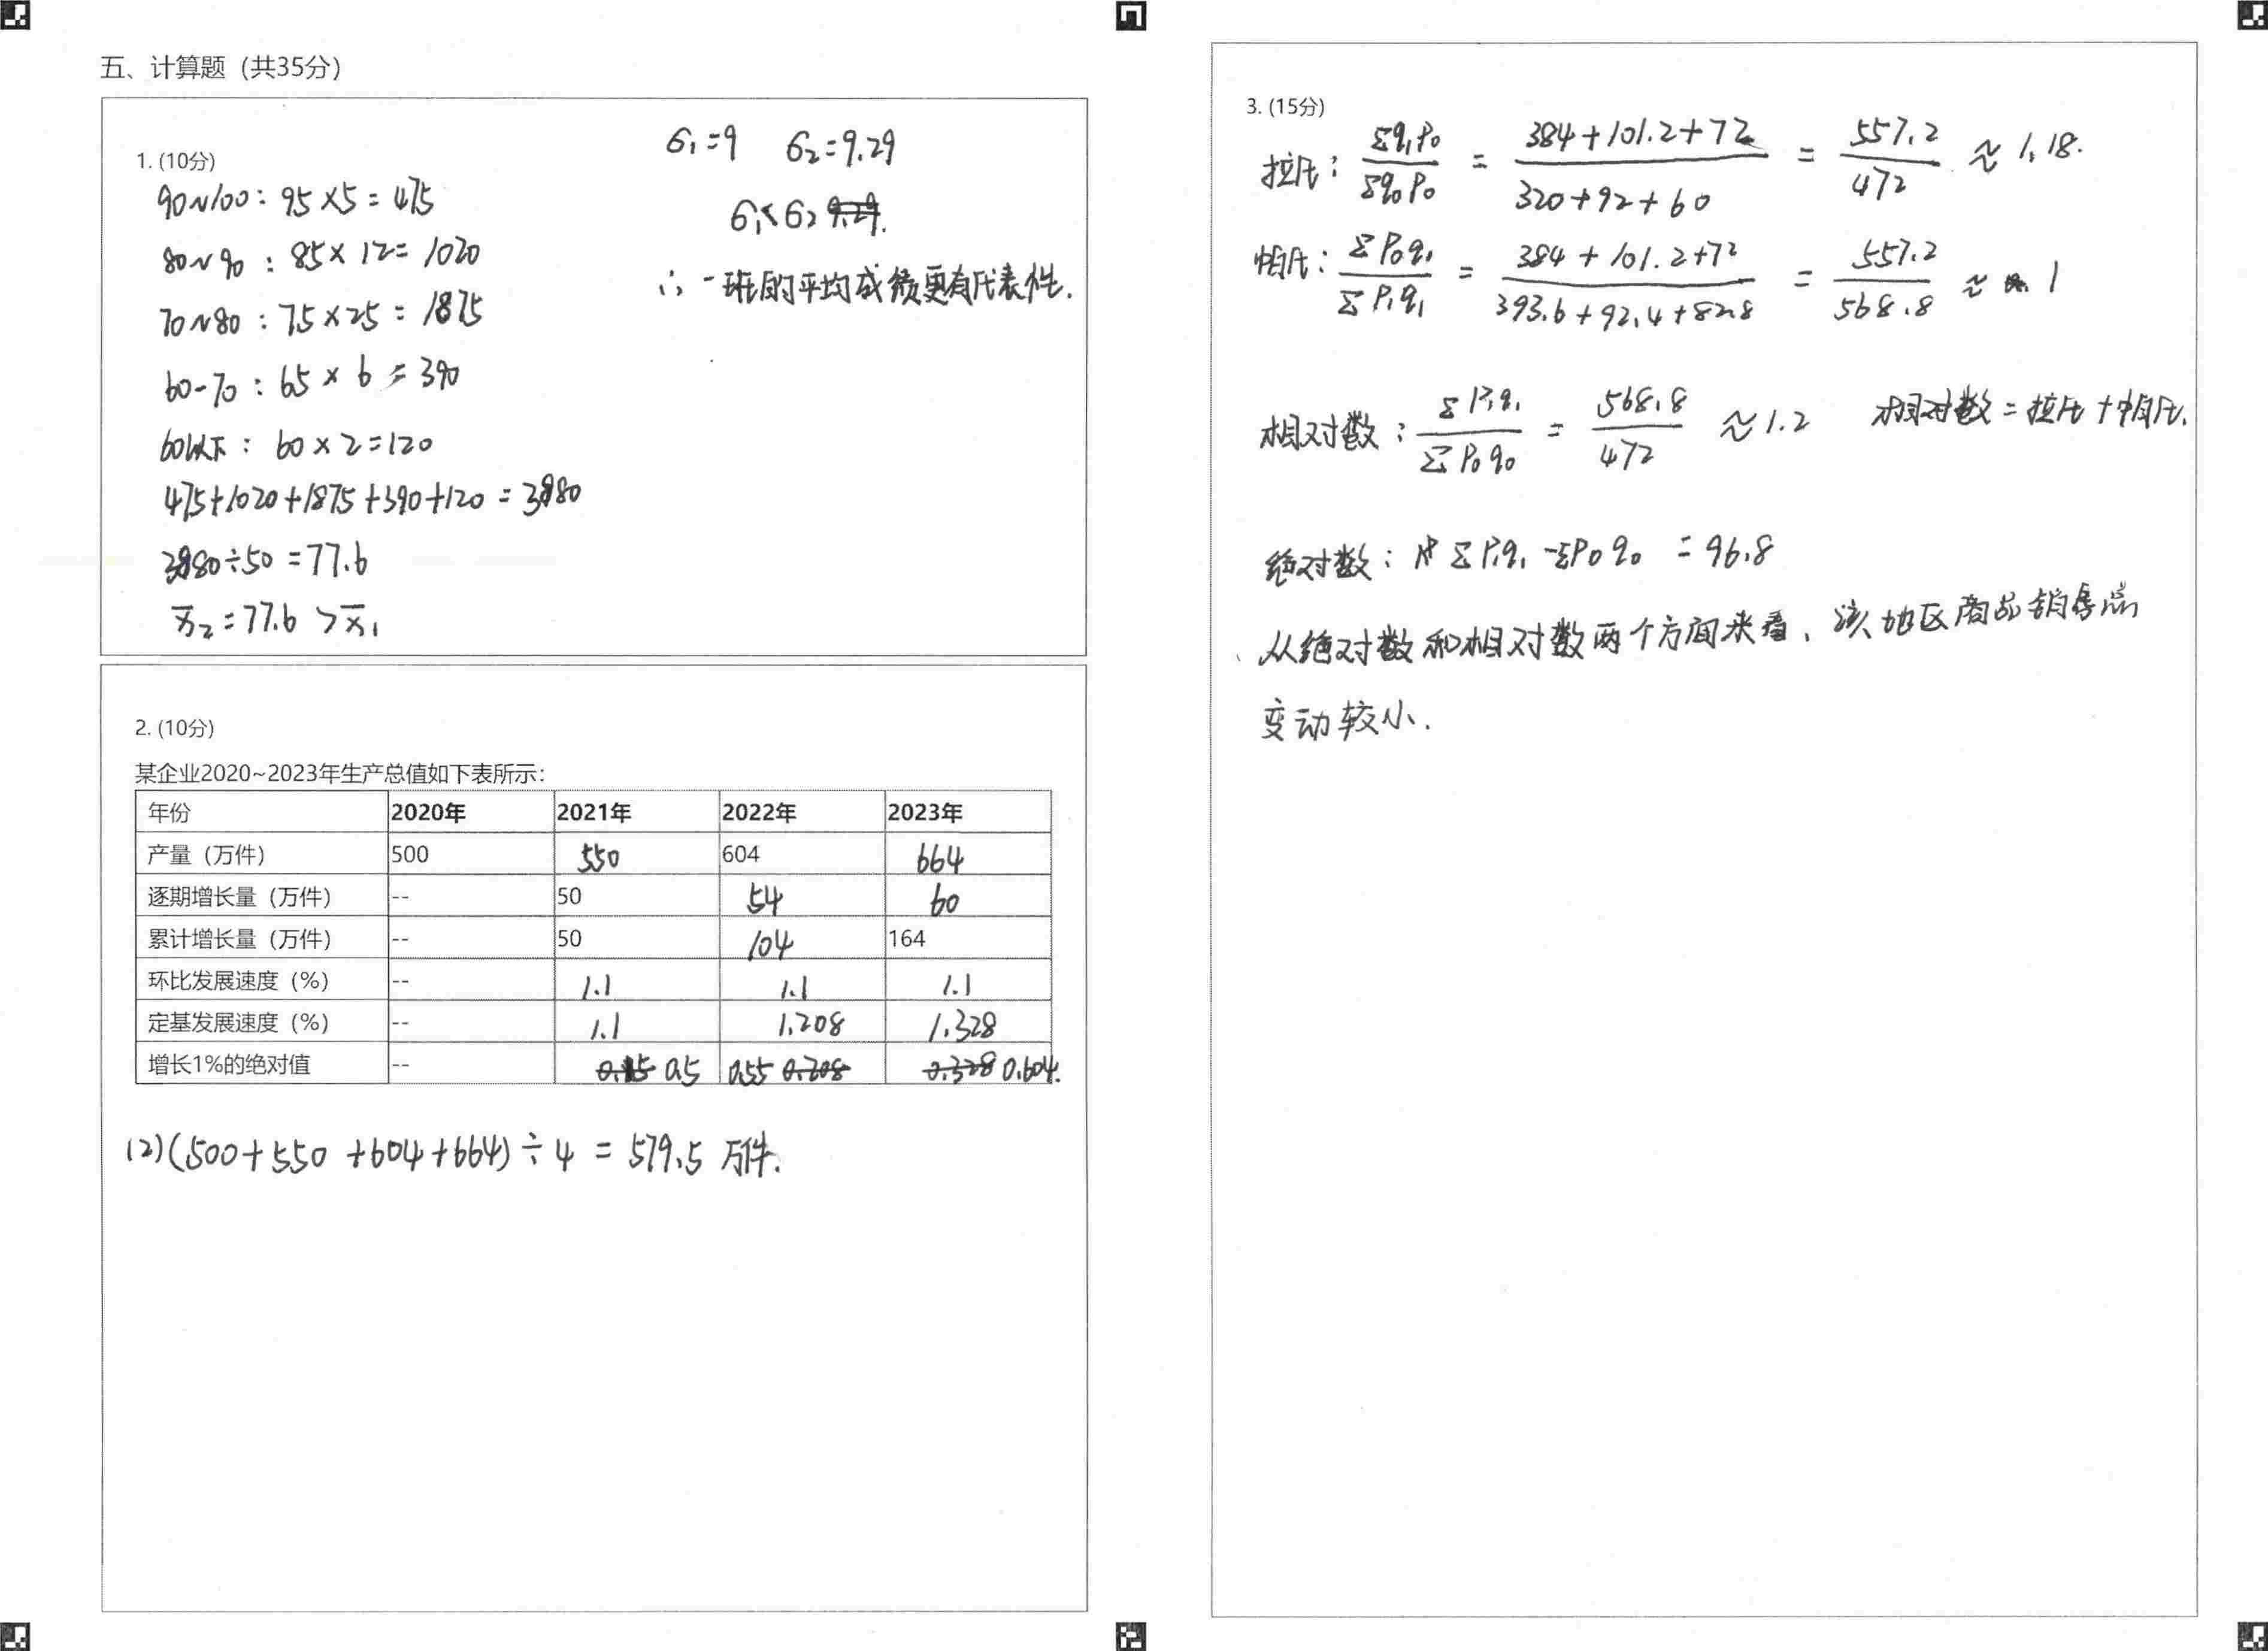 五、计算题（共35分）
1. (10分)
90~100：95×5=475
80~90：85×12=1020
70~80：75×25=1875
60-70：65×6=390
60以下：60×2=120
475+1020+1875+390+120=3880
3880÷50=77.6
x̄₂=77.6>x̄₁
σ₁=9 σ₂=9.29
σ₁<σ₂
∴一班的平均成绩更有代表性.
2. (10分)
某企业2020~2023年生产总值如下表所示：
年份 2020年 2021年 2022年 2023年
产量（万件） 500 550 604 664
逐期增长量（万件） -- 50 54 60
累计增长量（万件） -- 50 104 164
环比发展速度（%） -- 1.1 1.1 1.1
定基发展速度（%） -- 1.1 1.208 1.328
增长1%的绝对值 -- 0.5 0.55 0.208 0.328 0.604.
(2)(500+550+604+664)÷4=579.5 万件.
3. (15分)
拉氏：Σq₁p₀/Σq₀p₀ = (384+101.2+72)/(320+92+60) = 557.2/472 ≈1.18.
帕氏：ΣP₀q₁/ΣP₁q₁ = (384+101.2+72)/(393.6+92.4+82.8) = 557.2/568.8 ≈ 1
相对数：ΣP₁q₁/ΣP₀q₀ = 568.8/472 ≈1.2 相对数=拉氏+帕氏.
绝对数：ΣP₁q₁-ΣP₀q₀ =96.8
从绝对数和相对数两个方面来看，该地区商品销售总
变动较小.